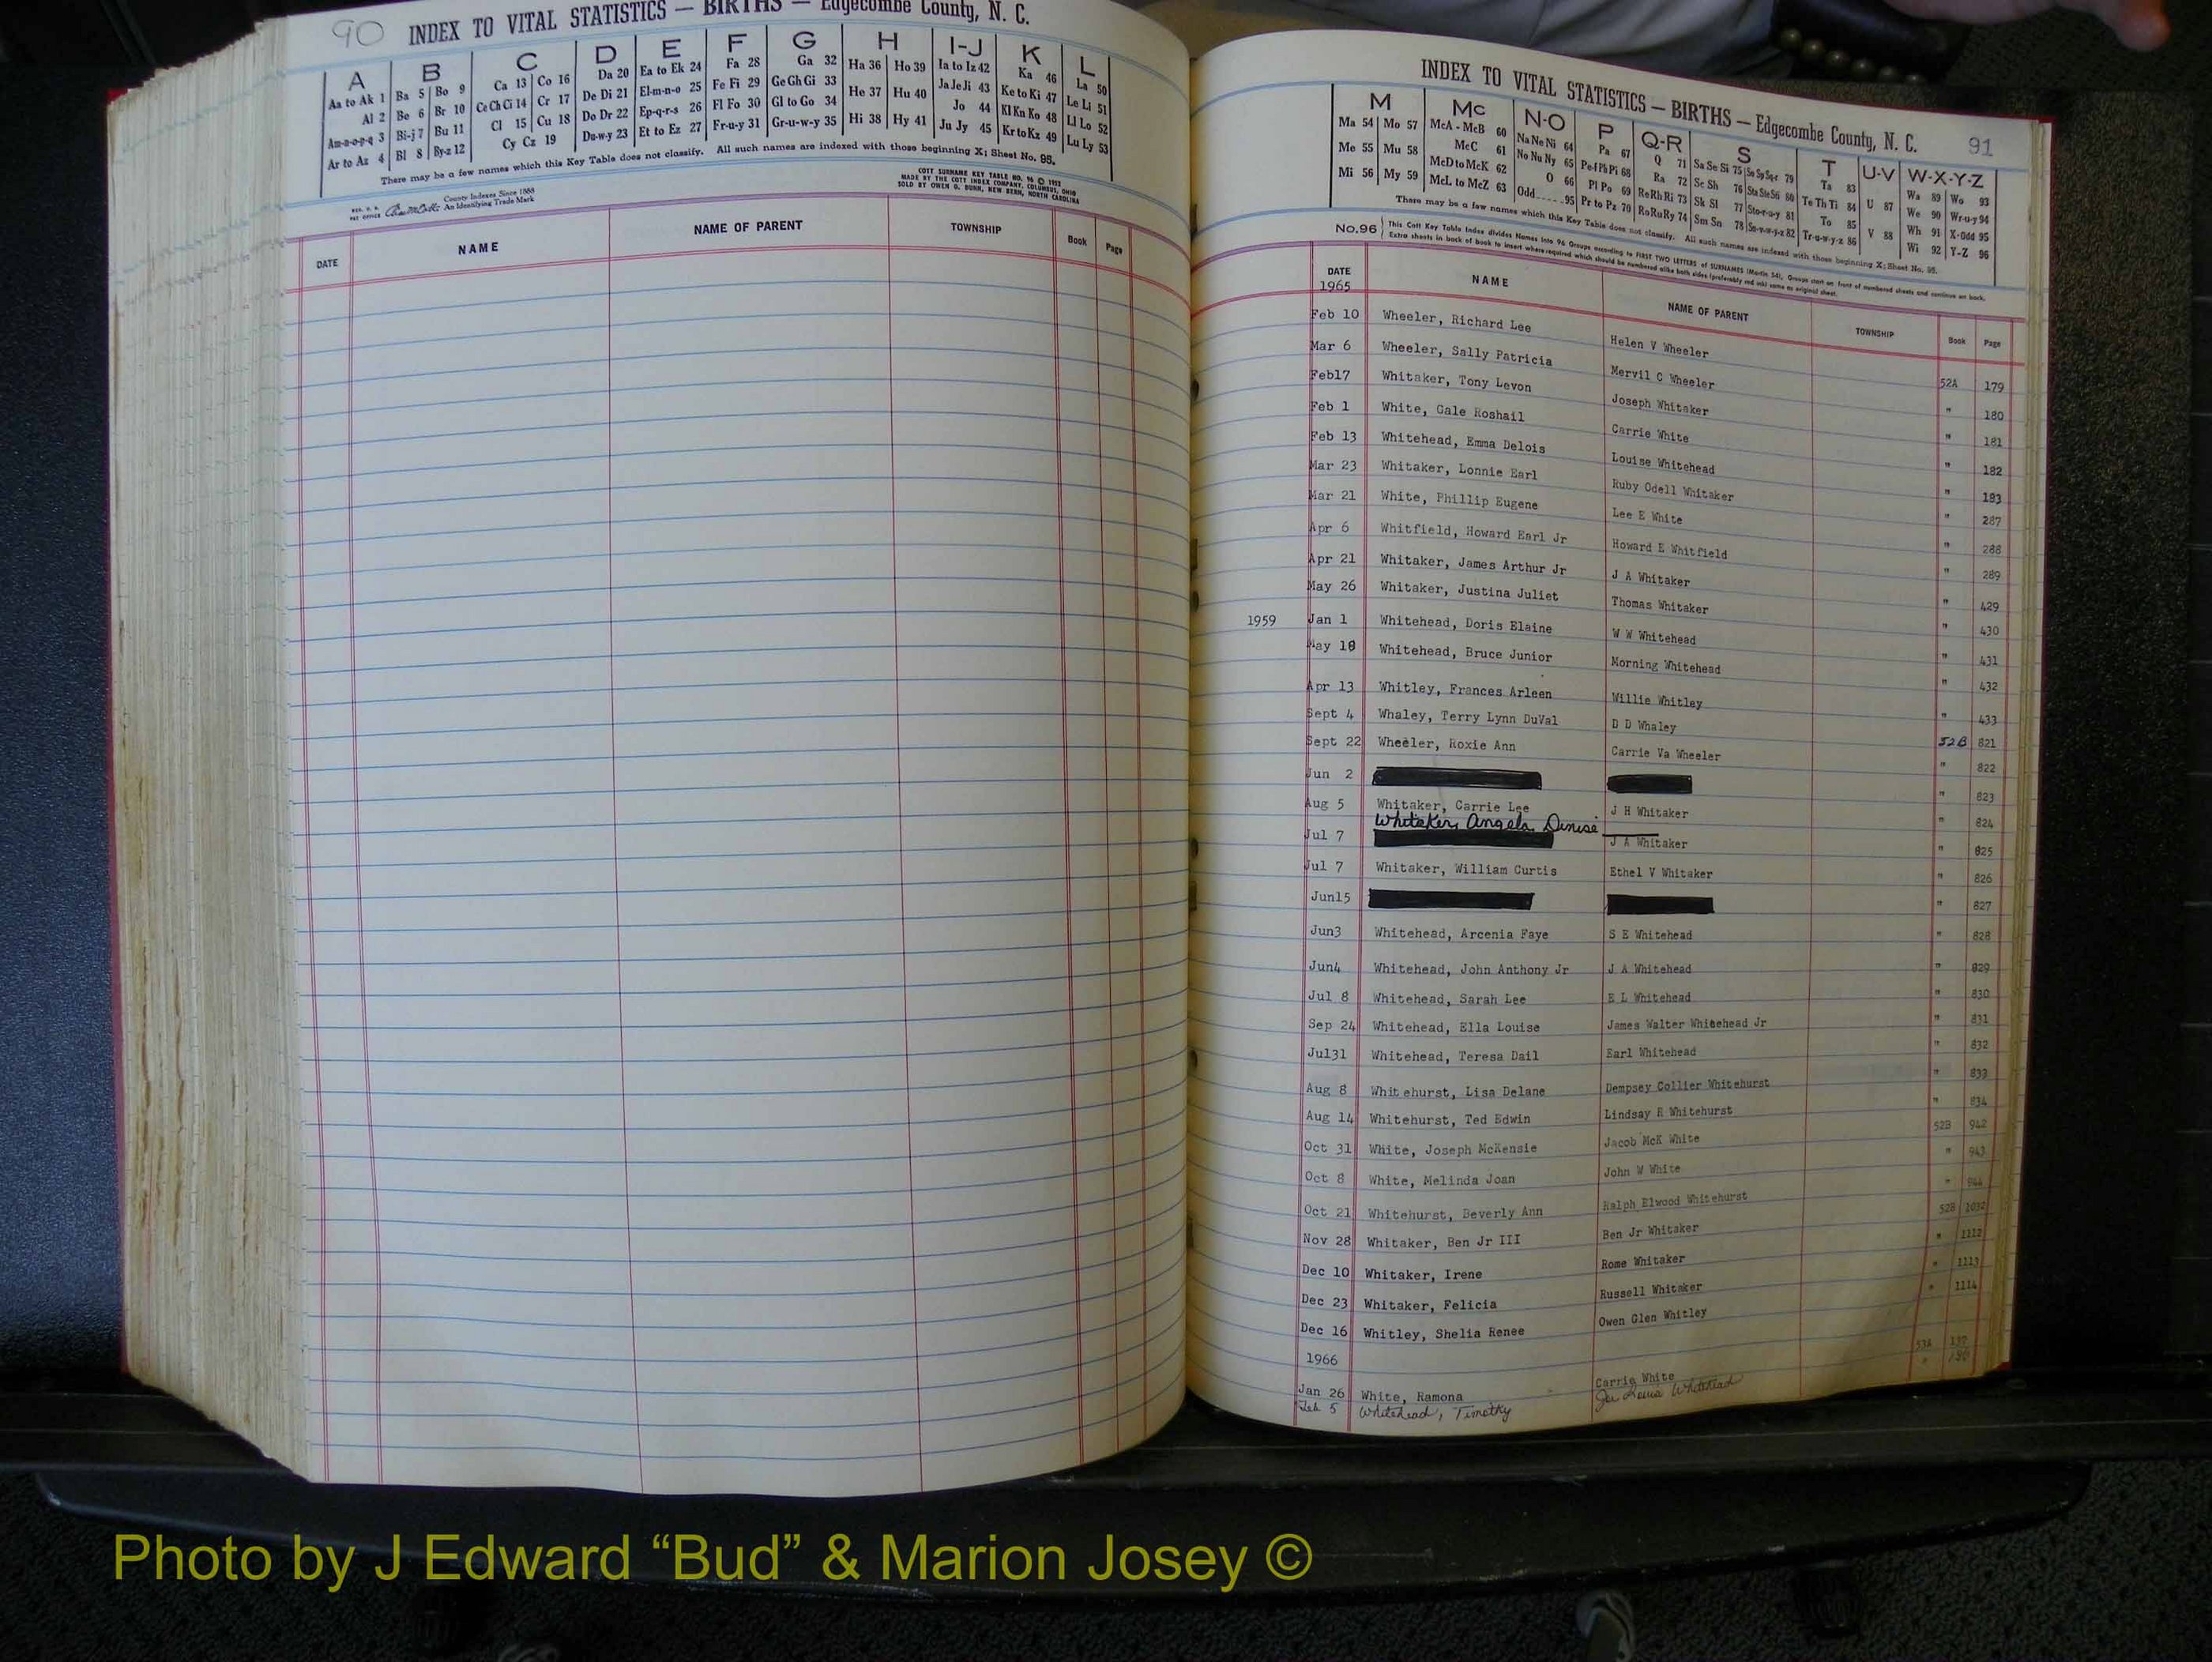 90 INDEX TO VITAL STATISTICS — BIRTHS — Edgecombe County, N. C.
A B C D E F G H I-J K L
Aa to Ak 1 Ba 5 Bo 9 Ca 13 Co 16 Da 20 Ea to Ek 24 Fa 28 Ga 32 Ha 36 Ho 39 Ia to Iz 42 Ka 46 La 50
Al 2 Be 6 Br 10 Ce Ch Ci 14 Cr 17 De Di 21 El-m-n-o 25 Fe Fi 29 Ge Gh Gi 33 He 37 Hu 40 Ja Je Ji 43 Ke to Ki 47 Le Li 51
Am-n-o-p-q 3 Bi-j 7 Bu 11 Cl 15 Cu 18 Do Dr 22 Ep-q-r-s 26 Fl Fo 30 Gl to Go 34 Hi 38 Hy 41 Jo 44 Kl Kn Ko 48 Ll Lo 52
Ar to Az 4 Bl 8 By-z 12 Cy Cz 19 Du-w-y 23 Et to Ez 27 Fr-u-y 31 Gr-u-w-y 35 Ju Jy 45 Kr to Kz 49 Lu Ly 53
There may be a few names which this Key Table does not classify. All such names are indexed with those beginning X; Sheet No. 95.
County Indexes Since 1888
An Identifying Trade Mark
COTT SURNAME KEY TABLE NO. 96 © 1952
MADE BY THE COTT INDEX COMPANY, COLUMBUS, OHIO
SOLD BY OWEN G. DUNN, NEW BERN, NORTH CAROLINA
DATE NAME NAME OF PARENT TOWNSHIP Book Page
INDEX TO VITAL STATISTICS — BIRTHS — Edgecombe County, N. C. 91
M Mc N-O P Q-R S T U-V W-X-Y-Z
Ma 54 Mo 57 McA - McB 60 Na Ne Ni 64 Pa 67 Q 71 Sa Se Si 75 So Sp Sq-r 79 Ta 83 U 87 Wa 89 Wo 93
Me 55 Mu 58 McC 61 No Nu Ny 65 Pe-f Ph Pi 68 Ra 72 Sc Sh 76 Sta Ste Sti 80 Te Th Ti 84 V 88 We 90 Wr-u-y 94
Mi 56 My 59 McD to McK 62 O 66 Pl Po 69 Re Rh Ri 73 Sk Sl 77 Sto-r-u-y 81 To 85 Wh 91 X-Odd 95
McL to McZ 63 Odd.....95 Pr to Pz 70 Ro Ru Ry 74 Sm Sn 78 Su-v-w-y-z 82 Tr-u-w-y-z 86 Wi 92 Y-Z 96
There may be a few names which this Key Table does not classify. All such names are indexed with those beginning X; Sheet No. 95.
No. 96 This Cott Key Table Index divides Names into 96 Groups according to FIRST TWO LETTERS of SURNAMES (Martin 54). Groups start on front of numbered sheets and continue on back.
Extra sheets in back of book to insert where required which should be numbered alike both sides (preferably red ink) same as original sheet.
DATE NAME NAME OF PARENT TOWNSHIP Book Page
1965
Feb 10 Wheeler, Richard Lee Helen V Wheeler 52A 179
Mar 6 Wheeler, Sally Patricia Mervil C Wheeler " 180
Feb17 Whitaker, Tony Levon Joseph Whitaker " 181
Feb 1 White, Gale Roshail Carrie White " 182
Feb 13 Whitehead, Emma Delois Louise Whitehead " 183
Mar 23 Whitaker, Lonnie Earl Ruby Odell Whitaker " 287
Mar 21 White, Phillip Eugene Lee E White " 288
Apr 6 Whitfield, Howard Earl Jr Howard E Whitfield " 289
Apr 21 Whitaker, James Arthur Jr J A Whitaker " 429
May 26 Whitaker, Justina Juliet Thomas Whitaker " 430
1959 Jan 1 Whitehead, Doris Elaine W W Whitehead " 431
May 18 Whitehead, Bruce Junior Morning Whitehead " 432
Apr 13 Whitley, Frances Arleen Willie Whitley " 433
Sept 4 Whaley, Terry Lynn DuVal D D Whaley 52B 821
Sept 22 Wheeler, Roxie Ann Carrie Va Wheeler " 822
Jun 2 " 823
Aug 5 Whitaker, Carrie Lee J H Whitaker " 824
Whitaker, Angela Denise
Jul 7 J A Whitaker " 825
Jul 7 Whitaker, William Curtis Ethel V Whitaker " 826
Jun15 " 827
Jun3 Whitehead, Arcenia Faye S E Whitehead " 828
Jun4 Whitehead, John Anthony Jr J A Whitehead " 829
Jul 8 Whitehead, Sarah Lee E L Whitehead " 830
Sep 24 Whitehead, Ella Louise James Walter Whitehead Jr " 831
Jul31 Whitehead, Teresa Dail Earl Whitehead " 832
Aug 8 Whitehurst, Lisa Delane Dempsey Collier Whitehurst " 833
Aug 14 Whitehurst, Ted Edwin Lindsay R Whitehurst " 834
Oct 31 White, Joseph McKensie Jacob McK White 52B 942
Oct 8 White, Melinda Joan John W White " 943
Oct 21 Whitehurst, Beverly Ann Ralph Elwood Whitehurst " 944
Nov 28 Whitaker, Ben Jr III Ben Jr Whitaker 52B 1032
Dec 10 Whitaker, Irene Rome Whitaker " 1112
Dec 23 Whitaker, Felicia Russell Whitaker " 1113
Dec 16 Whitley, Shelia Renee Owen Glen Whitley " 1114
1966
Jan 26 White, Ramona Carrie White 53A
Feb 5 Whitehead, Timothy Whitehead "
Photo by J Edward “Bud” & Marion Josey ©